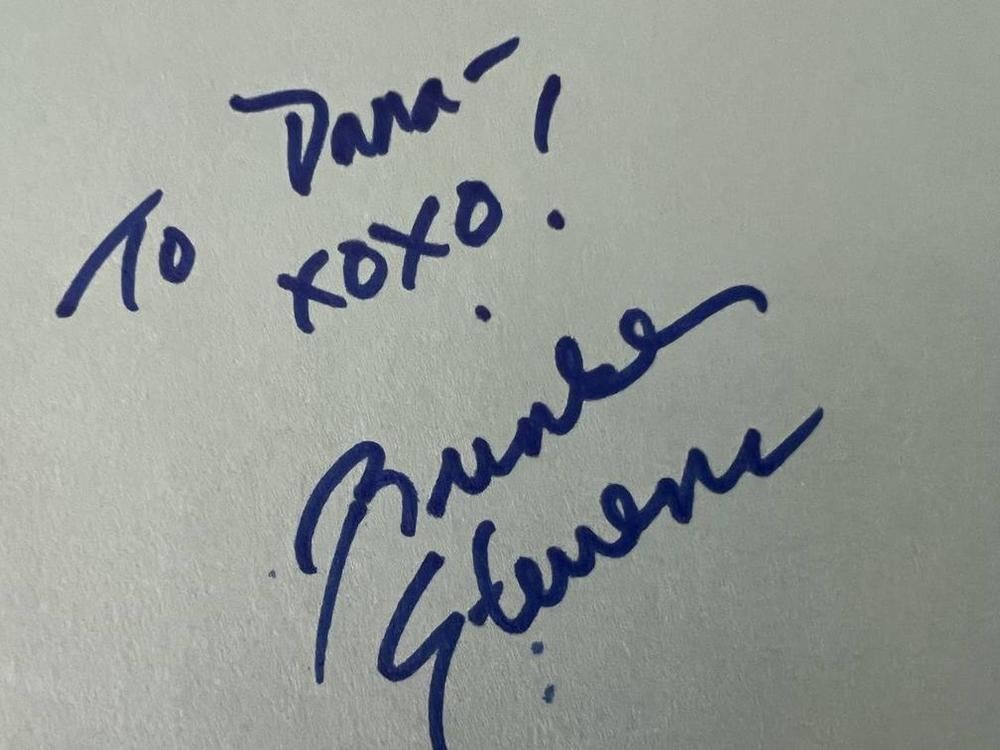 To Dana-
XOXO!
Stevens